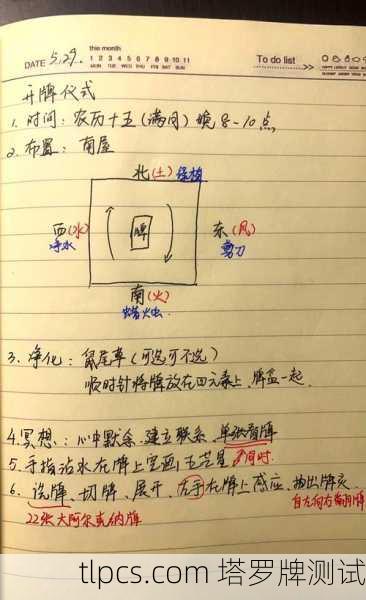 this month
DATE 5.29.
1 2 3 4 5 6 7 8 9 10 11
MON TUE WED THU FRI SAT SUN
To do list >>
开牌仪式
1. 时间: 农历十五(满月) 晚8-10点
2. 布置: 南屋
北(土)
西(水) 牌 东(风)
净水 剪刀
南(火)
蜡烛
3. 净化: 鼠尾草 (可选可不选)
顺时针将牌放在四元素上, 牌盒一起.
4. 冥想: 心中默念, 建立联系, 单张看牌
5. 手指沾水在牌上空画五芒星
6. 洗牌、切牌、展开、左手在牌上感应、抽出牌灵
22张大阿尔克纳牌
tlpcs.com 塔罗牌测试